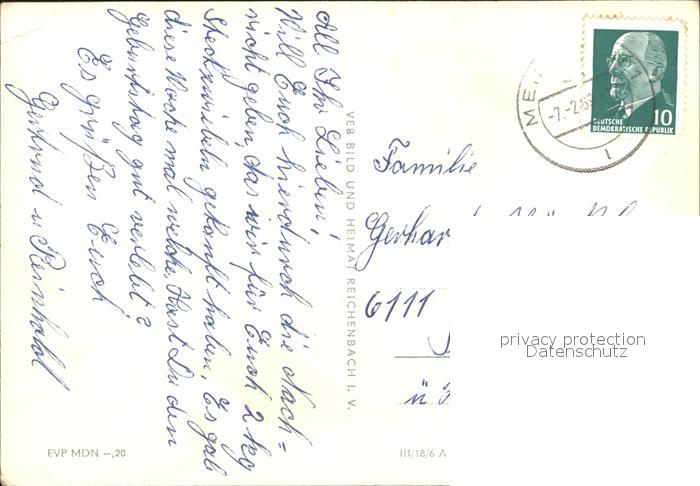 All Ihr Lieben!
Will Euch hierdurch die Nach=
richt geben, das wir für Euch 2 kg
Steckzwiebeln gekauft haben. Es gab
diese Woche mal welche. Hast Du den
Geburtstag gut verlebt?
Es grüßen Euch
Gertrud u. Reinhold
VEB BILD UND HEIMAT REICHENBACH I. V.
EVP MDN –,20
III/18/6 A
DEUTSCHE
DEMOKRATISCHE REPUBLIK
10
-7.-2.
Familie
6111
privacy protection
Datenschutz